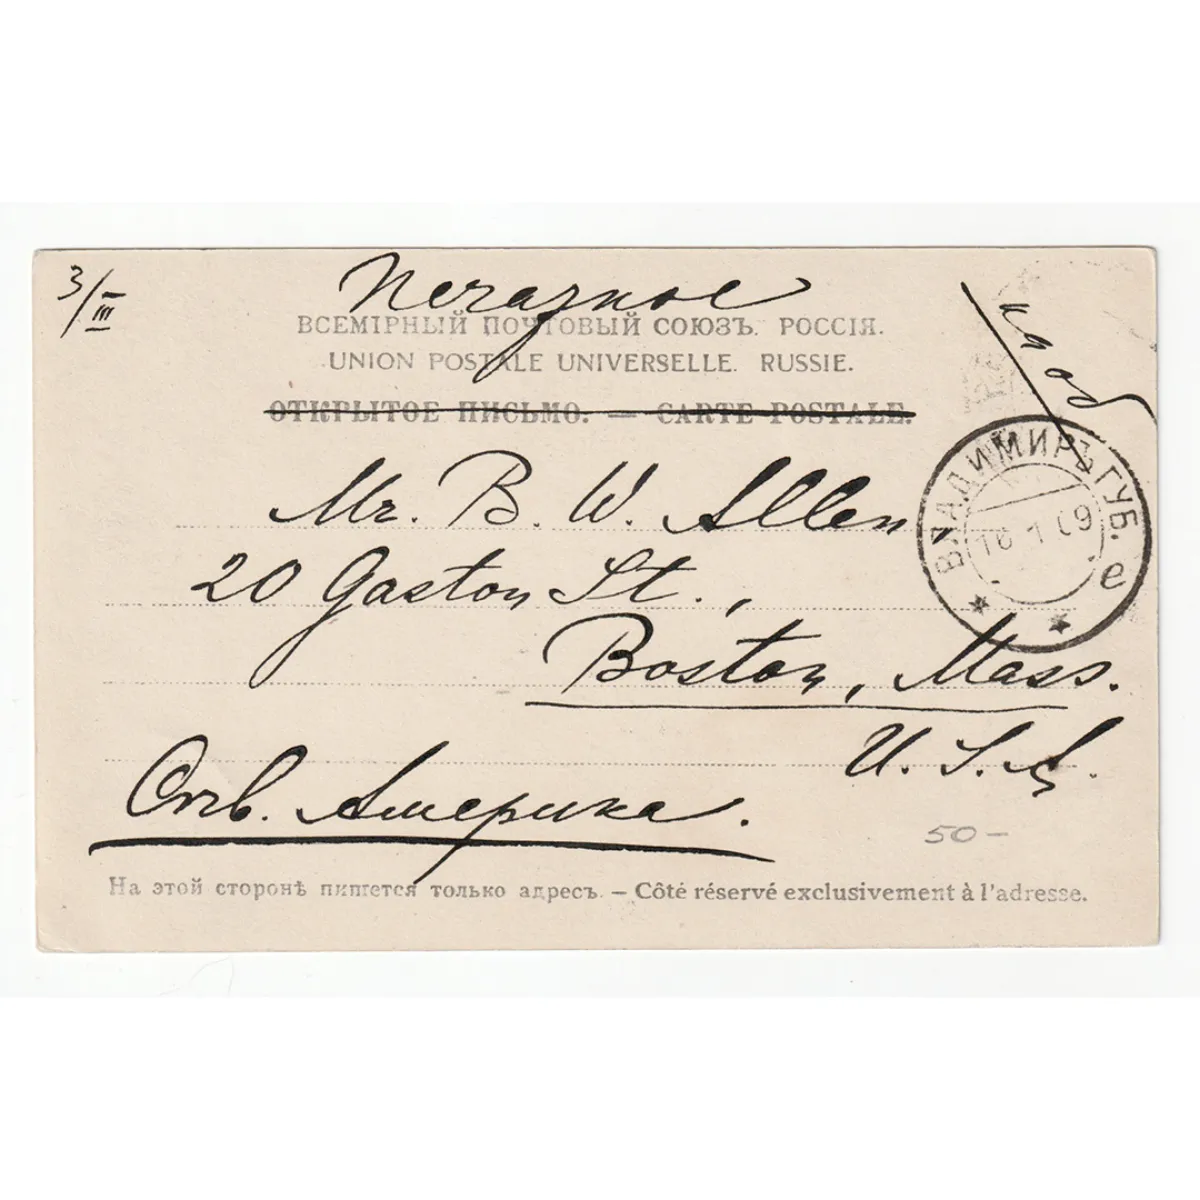 3/III
Печатное
ВСЕМІРНЫЙ ПОЧТОВЫЙ СОЮЗЪ. РОССІЯ.
UNION POSTALE UNIVERSELLE. RUSSIE.
ОТКРЫТОЕ ПИСЬМО. — CARTE POSTALE.
ВЛАДИМИРЪ ГУБ.
1 09
е
Mr. B. W. Allen
20 Gaston St.,
Boston, Mass.
U. S. A.
Америка.
50 –
На этой сторонѣ пишется только адресъ. — Côté réservé exclusivement à l'adresse.